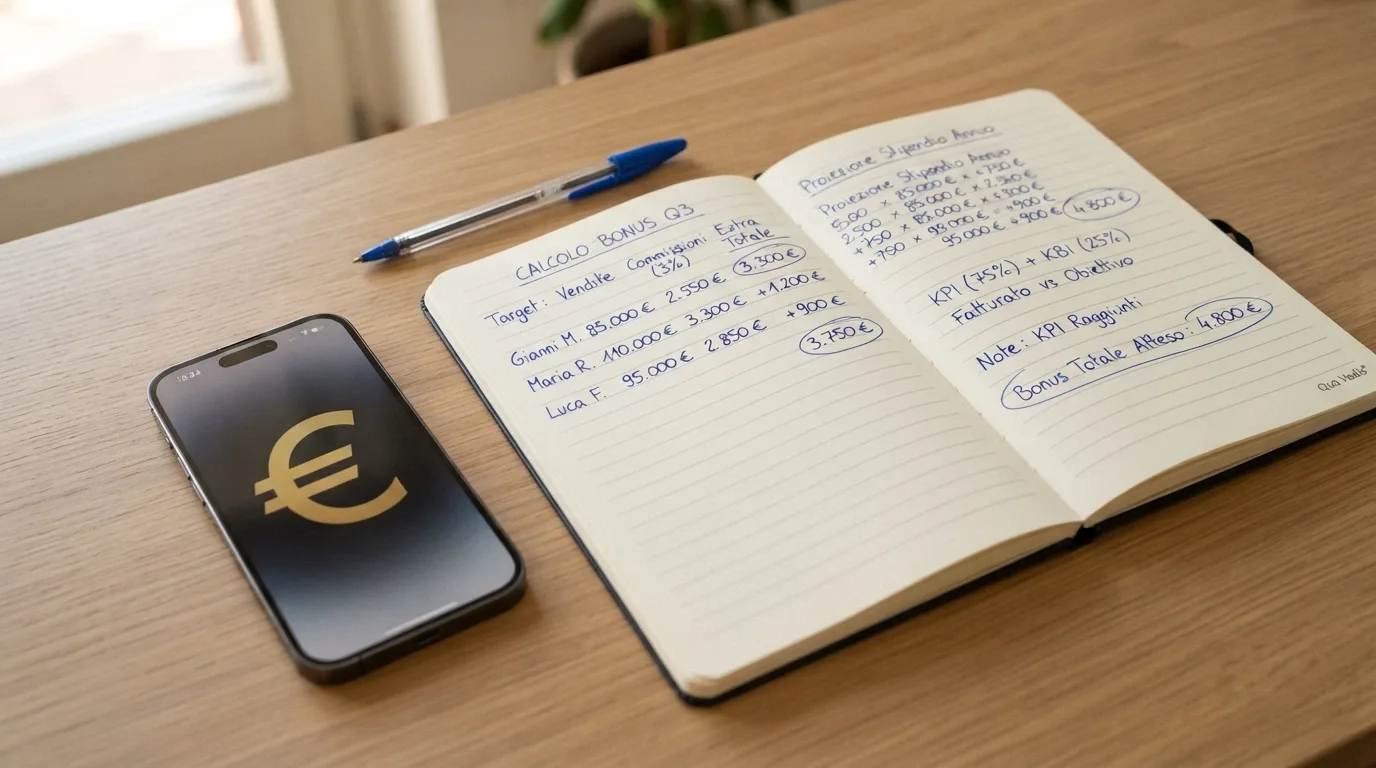 CALCOLO BONUS Q3
Target: Vendite Commissioni Extra
(3%) Totale
3.300 €
Gianni M. 85.000 € 2.550 €
Maria R. 110.000 € 3.300 € +1.200 €
Luca F. 95.000 € 2.850 € +900 €
3.750 €
Proiezione Stipendio Annuo
Proiezione Stipendio Annuo
85.000 €
2.500 × 85.000 €
+750 ×
+750 × 93.000 € +900 €
95.000 € +900 €
4.800 €
KPI (75%) + KBI (25%)
Fatturato vs Obiettivo
Note: KPI Raggiunti
Bonus Totale Atteso: 4.800 €
€